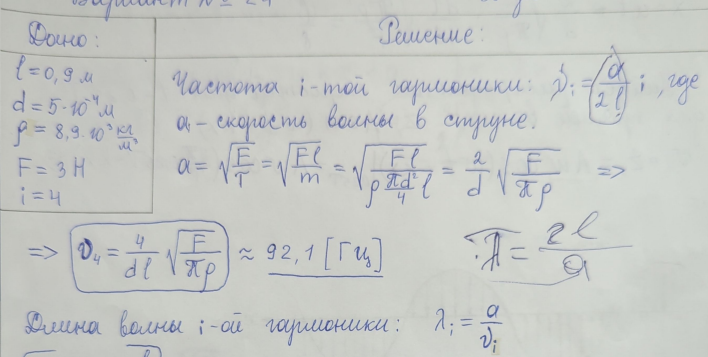 Вариант № 24
Дано:
Решение:
l = 0,9 м
d = 5·10⁻⁴ м
ρ = 8,9·10³ кг/м³
F = 3 Н
i = 4
Частота i-той гармоники: ν_i = a/2l i, где
a - скорость волны в струне.
a = √(F/T) = √(Fl/m) = √(Fl/(ρ πd²/4 l)) = 2/d √(F/πρ) =>
=> ν₄ = 4/dl √(F/πρ) ≈ 92,1 [Гц]
= 2l/a
Длина волны i-ой гармоники: λ_i = a/ν_i